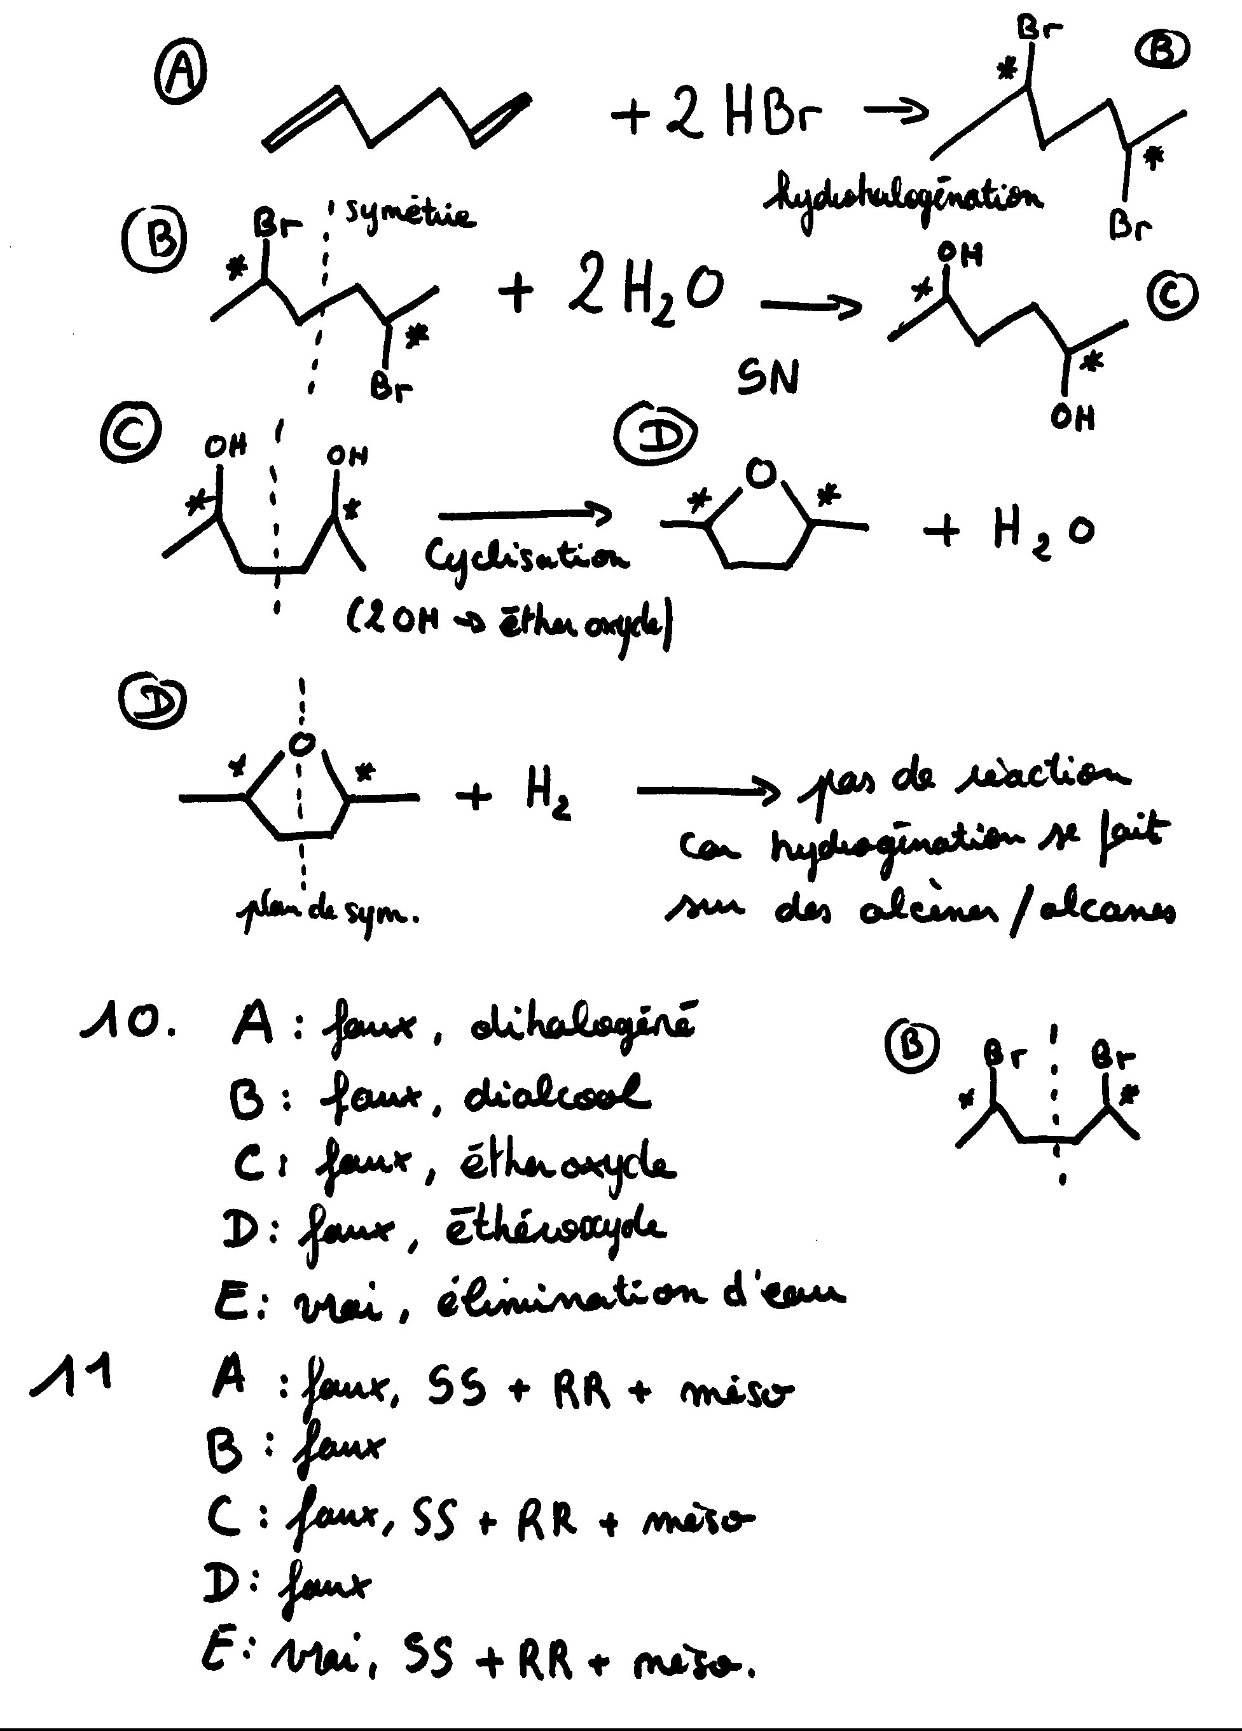 A + 2 HBr → Br * B
* Br
hydrohalogénation
B Br * symétrie + 2 H2O → OH * C
* Br
SN
* OH
C OH OH D O
* * → * * + H2O
Cyclisation
(2 OH → éther oxyde)
D O
* * + H2 → pas de réaction
car hydrogénation se fait
plan de sym. sur des alcènes / alcanes
10. A : faux, dihalogéné
B : faux, dialcool
C : faux, éther oxyde
D : faux, éthéroxyde
E : vrai, élimination d'eau
B Br Br
* *
11 A : faux, SS + RR + méso
B : faux
C : faux, SS + RR + méso
D : faux
E : vrai, SS + RR + méso.